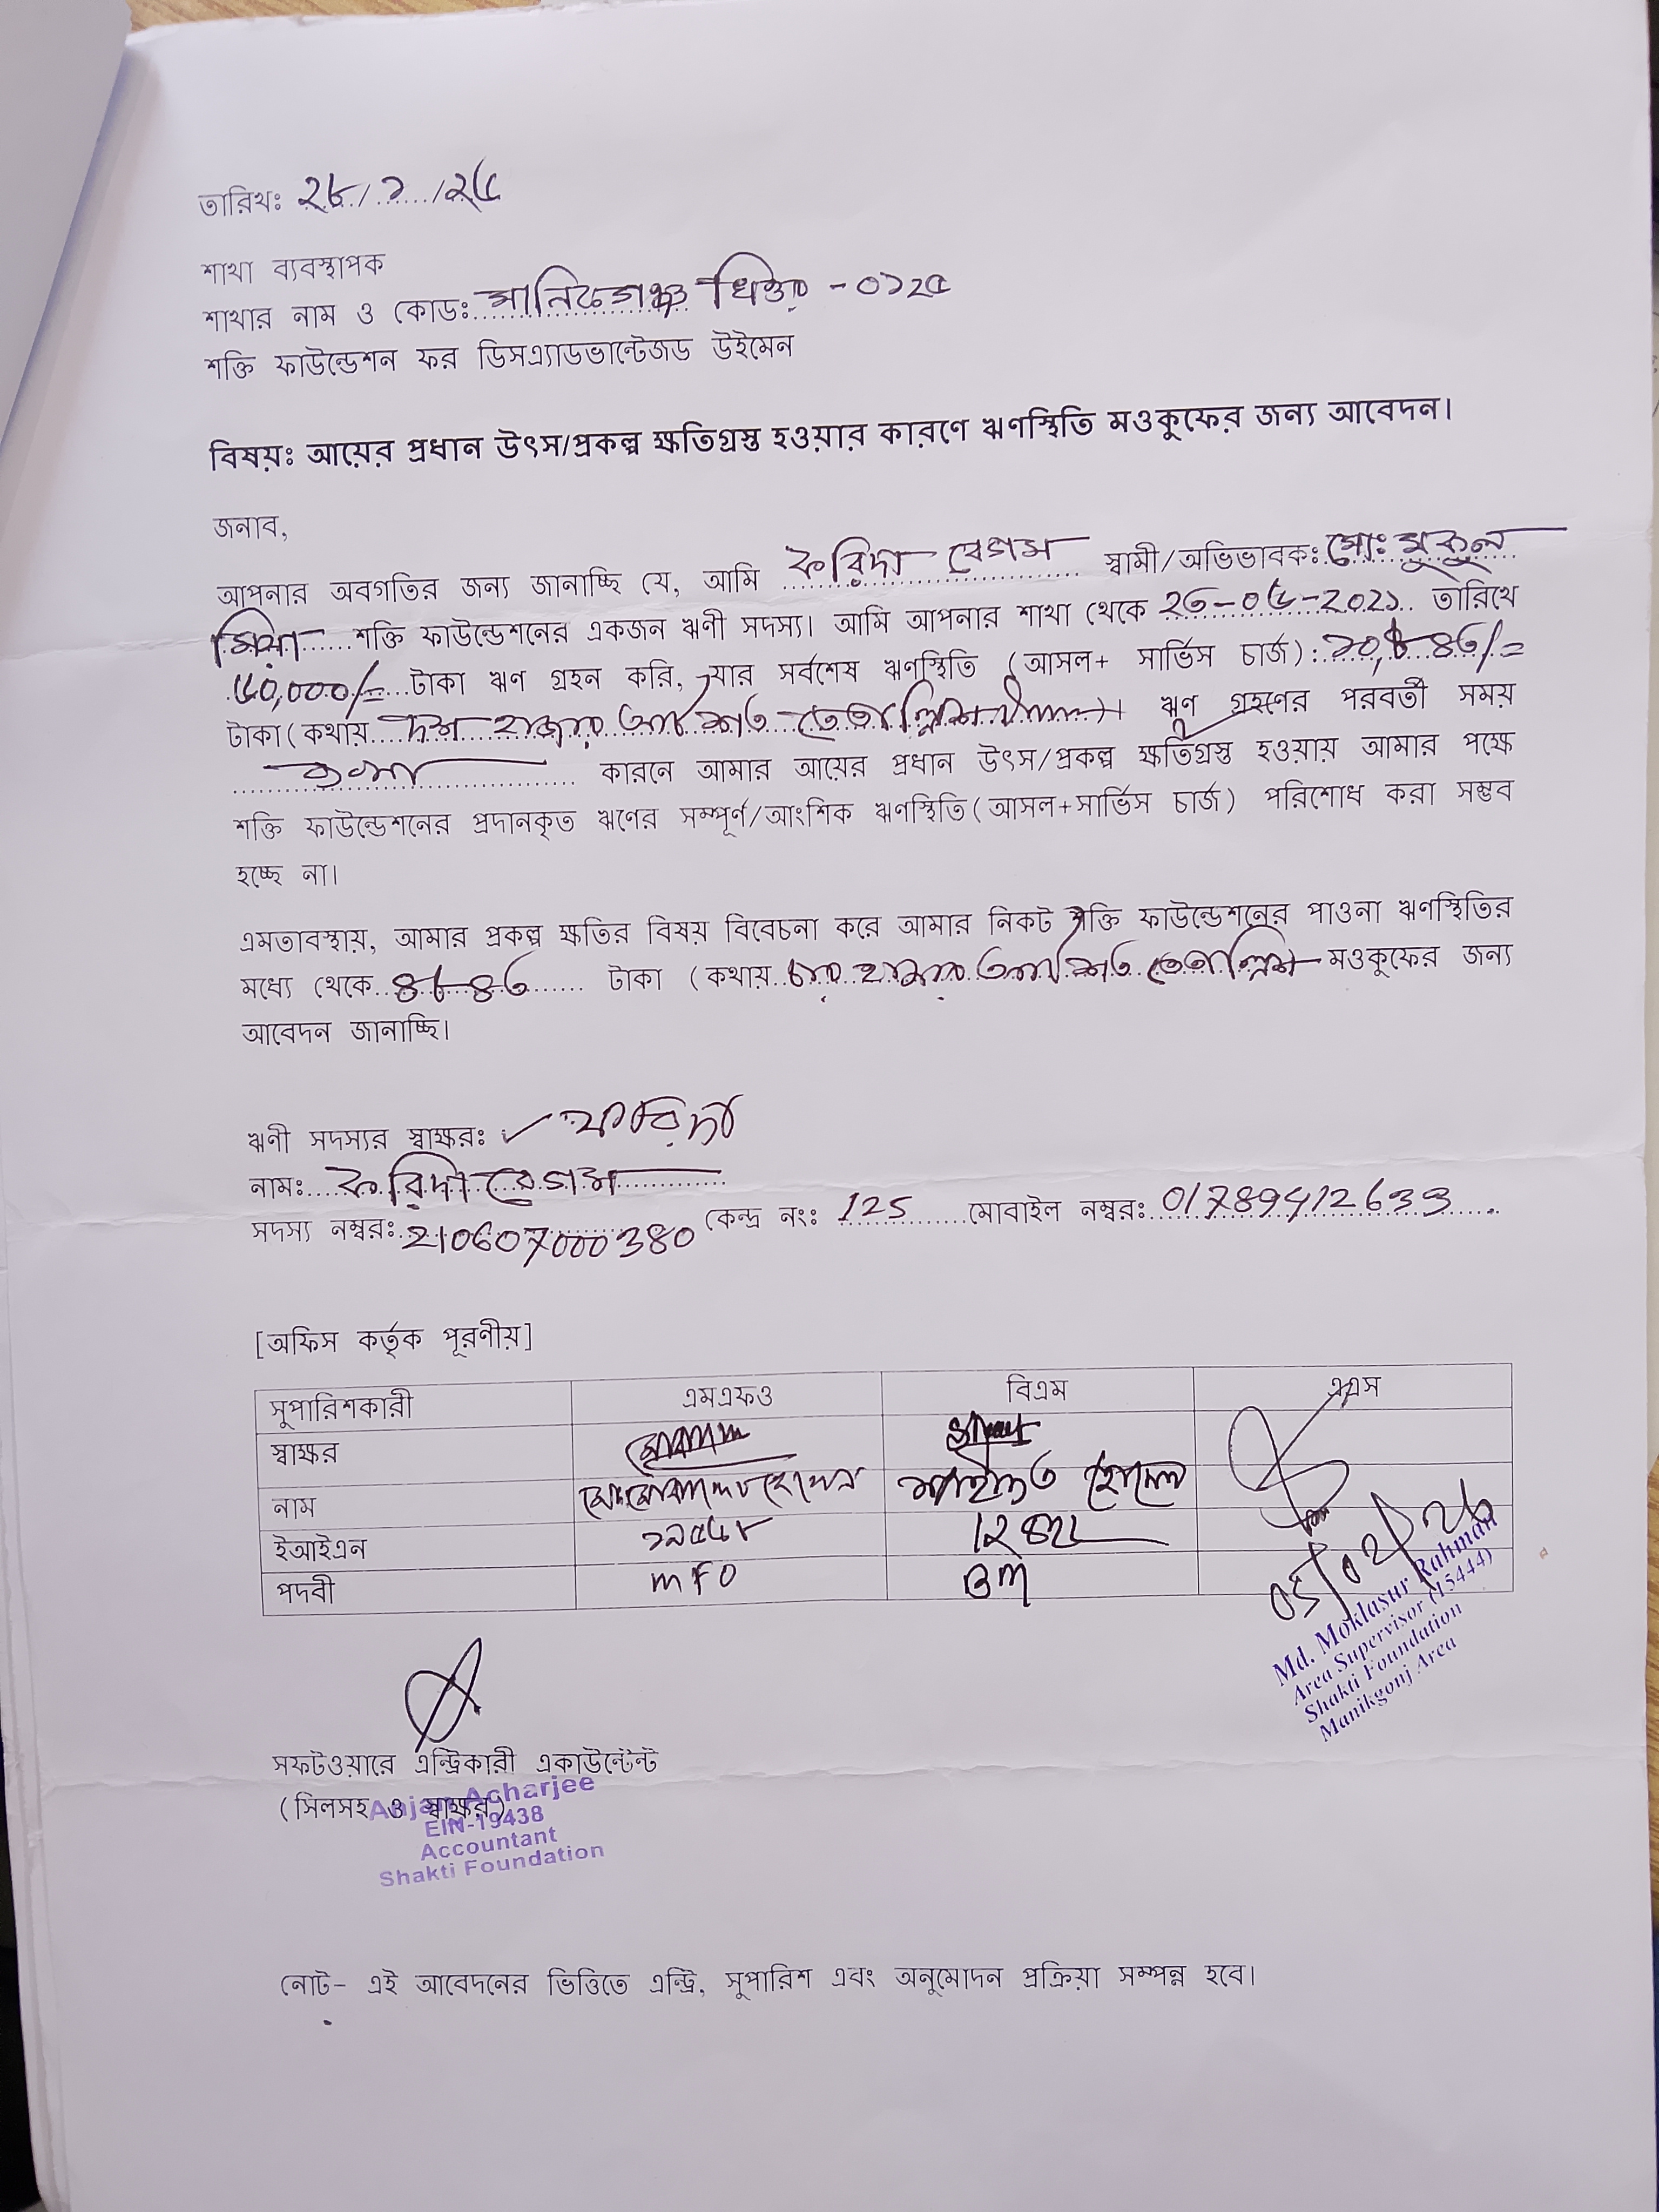 তারিখঃ ২৮/১/২৫
শাখা ব্যবস্থাপক
শাখার নাম ও কোডঃ মানিকগঞ্জ ঘিওর - ০১২৫
শক্তি ফাউন্ডেশন ফর ডিসএ্যাডভান্টেজড উইমেন
বিষয়ঃ আয়ের প্রধান উৎস/প্রকল্প ক্ষতিগ্রস্ত হওয়ার কারণে ঋণস্থিতি মওকুফের জন্য আবেদন।
জনাব,
আপনার অবগতির জন্য জানাচ্ছি যে, আমি ফরিদা বেগম স্বামী/অভিভাবকঃ মোঃ মুকুল
মিয়া শক্তি ফাউন্ডেশনের একজন ঋণী সদস্য। আমি আপনার শাখা থেকে ২৩-০৫-২০২১ তারিখে
৫০,০০০/= টাকা ঋণ গ্রহন করি, যার সর্বশেষ ঋণস্থিতি (আসল+ সার্ভিস চার্জ): ১০,৮৪৩/=
টাকা(কথায় দশ হাজার আটশত তেতাল্লিশ ঋণ গ্রহণের পরবর্তী সময়
কারনে আমার আয়ের প্রধান উৎস/প্রকল্প ক্ষতিগ্রস্ত হওয়ায় আমার পক্ষে
শক্তি ফাউন্ডেশনের প্রদানকৃত ঋণের সম্পূর্ণ/আংশিক ঋণস্থিতি(আসল+সার্ভিস চার্জ) পরিশোধ করা সম্ভব
হচ্ছে না।
এমতাবস্থায়, আমার প্রকল্প ক্ষতির বিষয় বিবেচনা করে আমার নিকট শক্তি ফাউন্ডেশনের পাওনা ঋণস্থিতির
মধ্যে থেকে ৪৮৪৩ টাকা (কথায় চার হাজার আটশত তেতাল্লিশ মওকুফের জন্য
আবেদন জানাচ্ছি।
ঋণী সদস্যর স্বাক্ষরঃ ফারিদা
নামঃ ফরিদা বেগম
সদস্য নম্বরঃ 210607000380 কেন্দ্র নংঃ 125 মোবাইল নম্বরঃ 01789412633
[অফিস কর্তৃক পূরণীয়]
সুপারিশকারী এমএফও বিএম এএস
স্বাক্ষর
নাম
ইআইএন
পদবী MFO BM
05/02/26
Md. Moklasur Rahman
Area Supervisor (15444)
Shakti Foundation
Manikgonj Area
সফটওয়ারে এন্ট্রিকারী একাউন্টেন্ট
(সিলসহ ও স্বাক্ষর)
Anjan Acharjee
EIN-19438
Accountant
Shakti Foundation
নোট- এই আবেদনের ভিত্তিতে এন্ট্রি, সুপারিশ এবং অনুমোদন প্রক্রিয়া সম্পন্ন হবে।